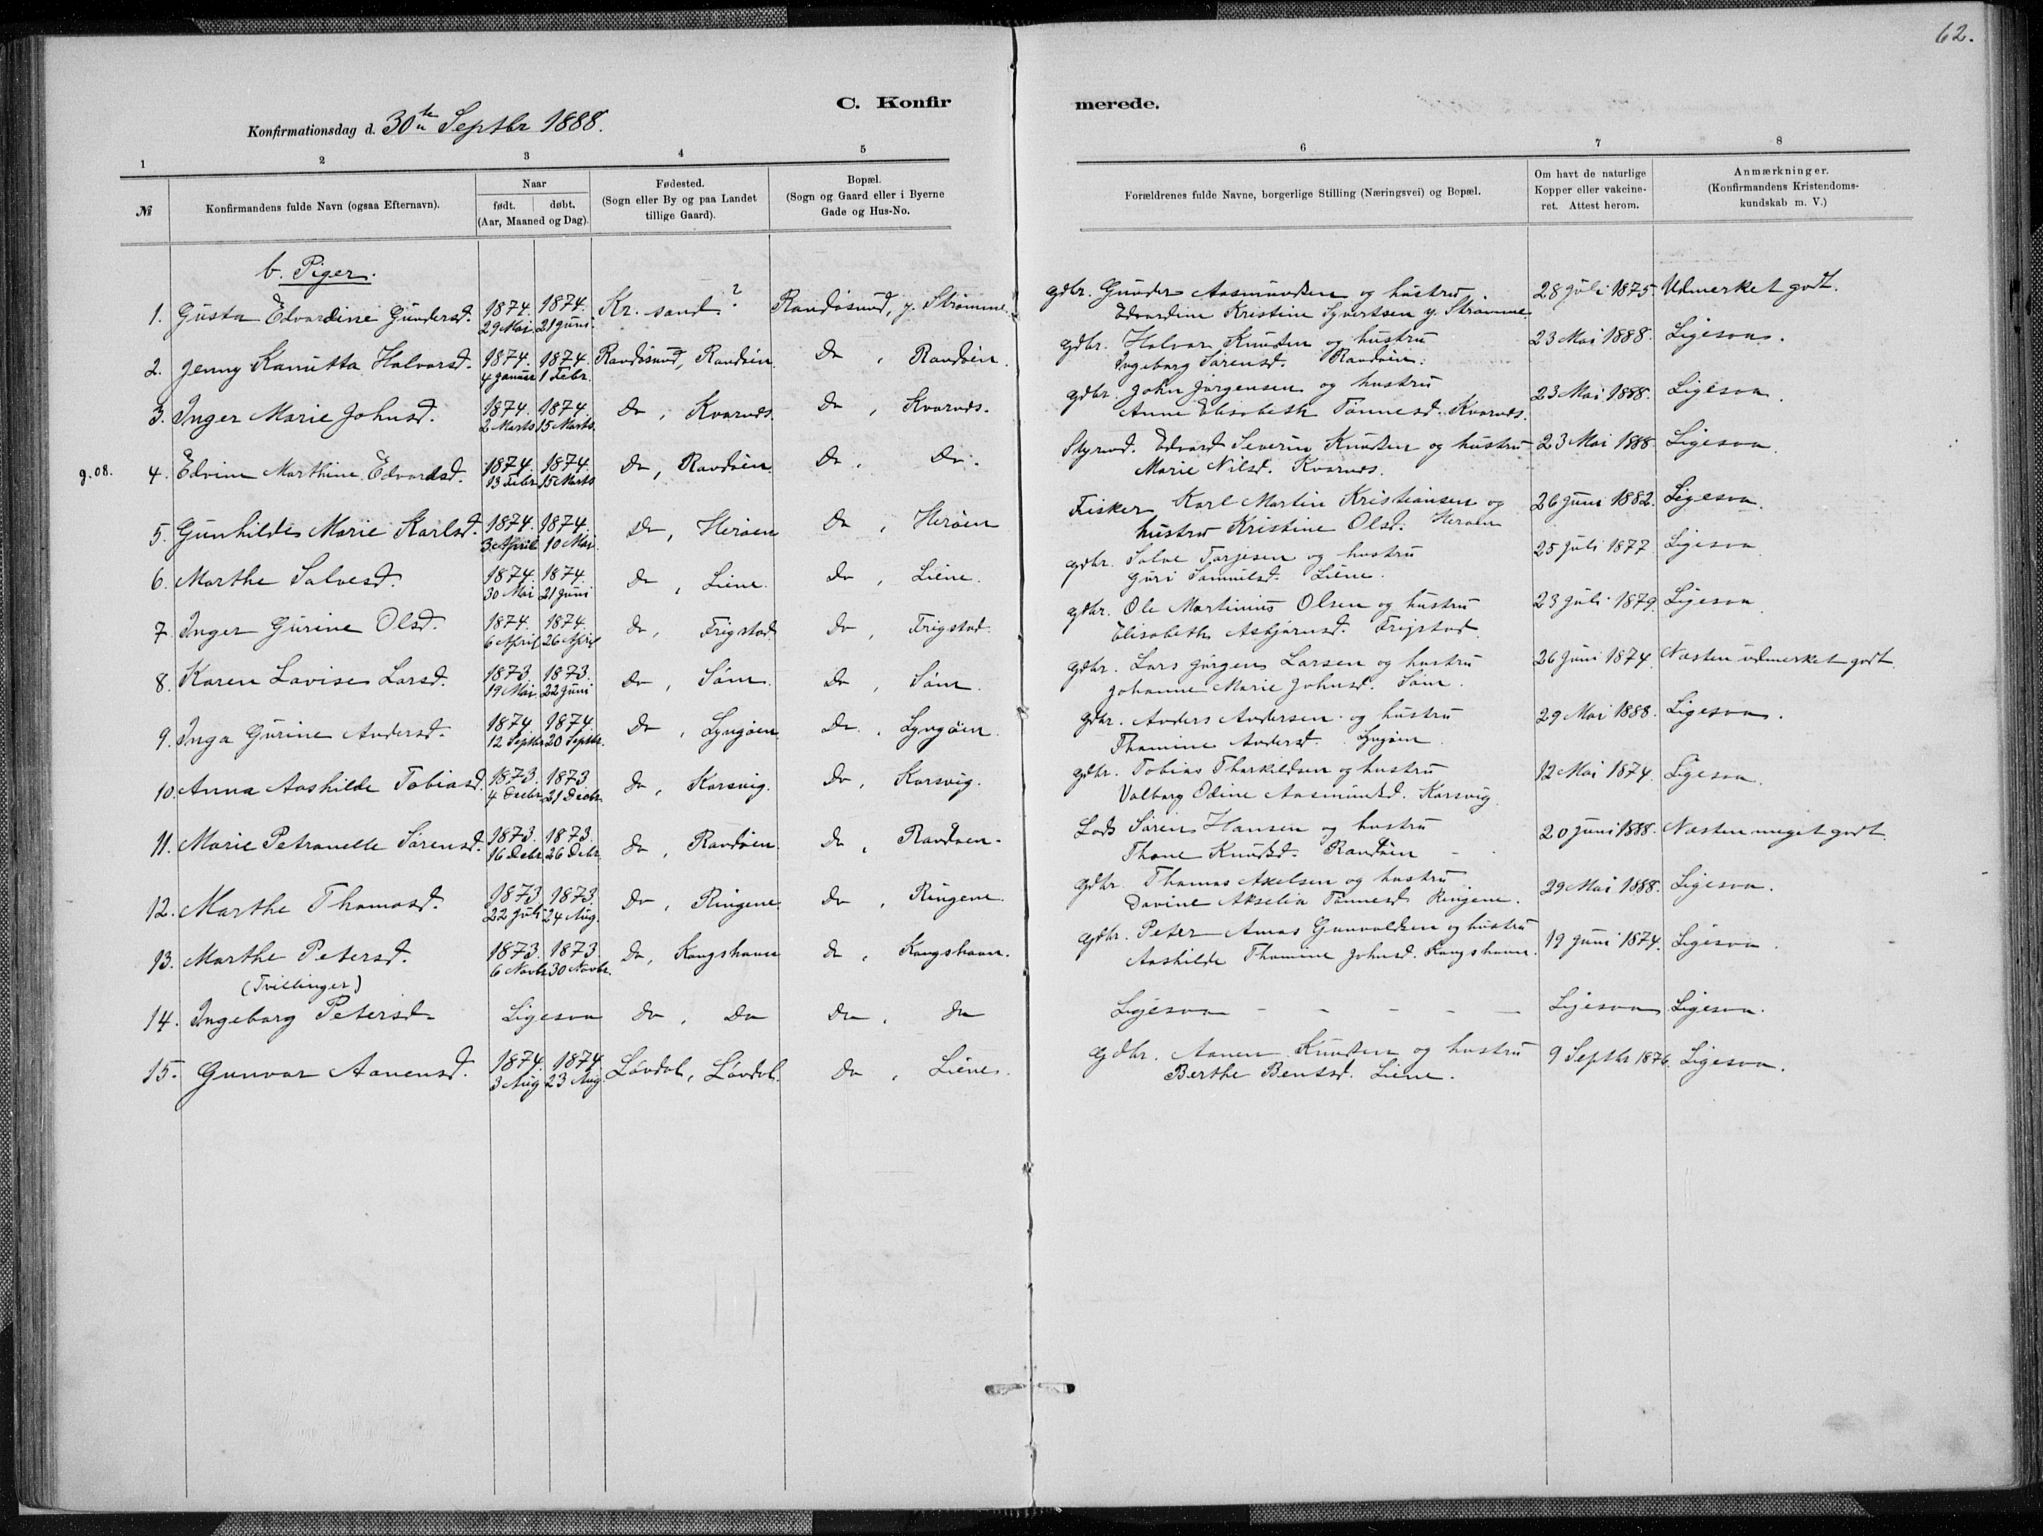 62.
C. Konfirmerede.
Konfirmationsdag d. 30te Septbr 1888.
1 2 3 4 5 6 7 8
№ Konfirmandens fulde Navn (ogsaa Efternavn). Naar født. døbt. (Aar, Maaned og Dag). Fødested. (Sogn eller By og paa Landet tillige Gaard). Bopæl. (Sogn og Gaard eller i Byerne Gade og Hus-No. Forældrenes fulde Navne, borgerlige Stilling (Næringsvei) og Bopæl. Om havt de naturlige Kopper eller vakcineret. Attest herom. Anmærkninger. (Konfirmandens Kristendomskundskab m. V.)
b. Piger.
1. Gusta Edvardine Gundersd. 1874. 29 Mai 1874. 21 Juni. Kr. sand? Randøsund, y. Strømme. gdbr. Gunder Aasmundsen og hustru Edvardine Kristine Syvertsen y. Strømme. 28 Juli 1875. Udmerket godt.
2. Jenny Kanutta Halvorsd. 1874. 4 Januar 1874. 1 Febr. Randøsund, Randøen Do, Randøen. gdbr. Halvor Knudsen og hustru Ingeborg Sørensd. Randøen. 23 Mai 1888. Ligesaa.
3. Inger Marie Johnsd. 1874. 2 Marts 1874. 15 Marts. Do, Kvarnes. Do, Kvarnes. gdbr. John Jørgensen og hustru Anne Elisabeth Tønnesd. Kvarnes. 23 Mai 1888. Ligesaa.
g. 08. 4. Edvine Marthine Edvardsd. 1874. 13 Febr 1874. 15 Marts Do, Randøen Do. Do. Styrmd. Edvard Severin Knudsen og hustru Marie Nilsd. Kvarnes. 23 Mai 1888. Ligesaa.
5. Gunhilde Marie Karlsd. 1874. 3 April 1874. 10 Mai. Do, Herøen Do, Herøen Fisker Karl Martin Kristiansen og hustru Kristine Olsd. Herøen 26 Juni 1882. Ligesaa.
6. Marthe Salvesd. 1874. 30 Mai 1874. 21 Juni Do, Liene. Do, Liene. gdbr. Salve Tarjesen og hustru Guri Samuelsd. Liene. 25 Juli 1877. Ligesaa
7. Inger Gurine Olsd. 1874. 6 April 1874. 26 April Do, Frigstad Do, Frigstad. gdbr. Ole Martinius Olsen og hustru Elisabeth Asbjørnsd. Frigstad. 23 Juli 1879. Ligesaa
8. Karen Lovise Larsd. 1873. 19 Mai 1873. 22 Juni Do, Søm. Do, Søm. gdbr. Lars Jørgen Larsen og hustru Johanne Marie Johnsd. Søm. 26 Juni 1874. Næsten udmerket godt
9. Inga Gurine Andersd. 1874 12 Septbr 1874 20 Septbr. Do, Lyngøen. Do, Lyngøen. gdbr. Anders Andersen og hustru Thomine Andersd. Lyngøen. 29 Mai 1888. Ligesaa.
10. Anna Aashilde Tobiasd. 1873. 4 Decbr 1873 21 Decbr. Do, Korsvig. Do, Korsvig. gdbr. Tobias Tharkildsen og hustru Valborg Odine Aasmundsd. Korsvig. 12 Mai 1874. Ligesaa.
11. Marie Petronelle Sørensd. 1873. 16 Debr 1873. 26 Debr. Do, Randøen. Do, Randøen. Lods Søren Hansen og hustru Thone Knudsd. Randøen 20 Juni 1888. Næsten meget godt.
12. Marthe Thomasd. 1873. 22 Juli 1873. 24 Aug. Do, Ringene. Do, Ringene. gdbr. Thomas Axelsen og hustru Davine Akselia Tønnesd. Ringene. 29 Mai 1888. Ligesaa.
13. Marthe Petersd. 1873. 6 Novbr 1873. 30 Novbr. Do, Kongshavn Do, Kongshavn. gdbr. Peter Amas Gunvaldsen og hustru Aashilde Thomine Johnsd. Kongshavn. 19 Juni 1874. Ligesaa.
(Tvillinger)
14. Ingeborg Petersd. Ligesaa Do, Do Do, Do Ligesaa - - - - - Ligesaa Ligesaa.
15. Gunvor Aanensd. 1874. 3 Aug 1874. 23 Aug. Løvdal, Løvdal. Do, Liene. gdbr. Aanen Knudsen og hustru Berthe Bentsd. Liene. 9 Septbr 1876. Ligesaa.